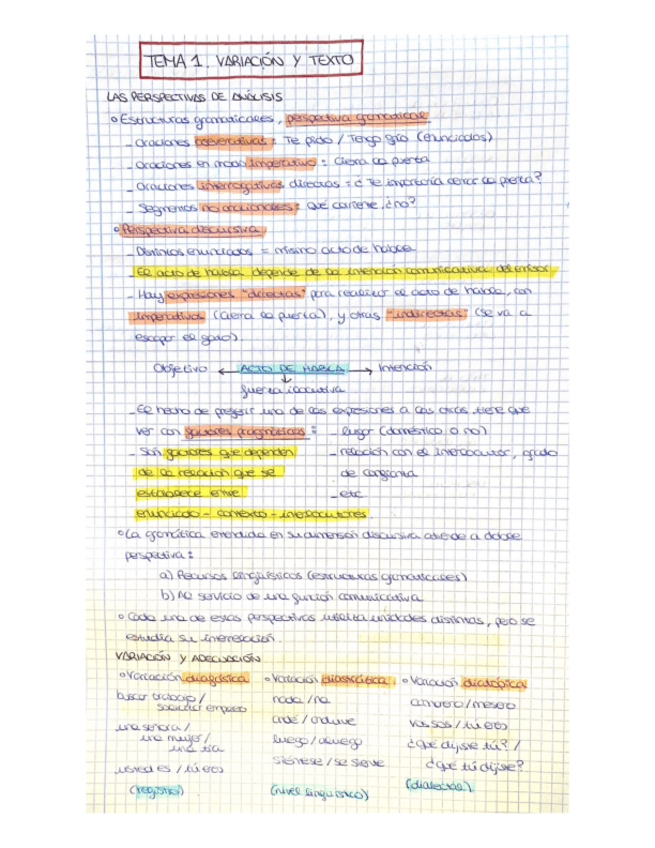 TEMA 1. VARIACIÓN Y TEXTO
LAS PERSPECTIVAS DE ANÁLISIS
Estructuras gramaticales, perspectiva gramatical
- Oraciones aseverativas: Te pido / Tengo frío (enunciados)
- Oraciones en modo imperativo: Cierra la puerta
- Oraciones interrogativas directas = ¿Te importaría cerrar la puerta?
- Segmentos no oracionales: Qué corriente, ¿no?
Perspectiva discursiva
- Distintos enunciados = mismo acto de habla
- El acto de habla depende de la intención comunicativa del emisor
- Hay expresiones "directas" para realizar el acto de habla, con
imperativos (cierra la puerta), y otras "indirectas" (se va a
escapar el gato).
Objetivo ← ACTO DE HABLA → Intención
↓
fuerza ilocutiva
- El hecho de preferir una de las expresiones a las otras tiene que
ver con factores pragmáticos: - lugar (doméstico o no)
- Son factores que dependen - relación con el interlocutor, grado
de la relación que se de confianza
establece entre - etc
enunciado - contexto - interlocutores.
La gramática entendida en su dimensión discursiva atiende a doble
perspectiva:
a) Recursos lingüísticos (estructuras gramaticales)
b) Al servicio de una función comunicativa
Cada una de estas perspectivas utiliza unidades distintas, pero se
estudia su interrelación.
VARIACIÓN Y ADECUACIÓN
Variación diafásica Variación diastrática Variación diatópica
buscar trabajo / nada / na camarero / mesero
solicitar empleo andé / anduve vos sos / tú eres
una señora / luego / aluego ¿qué dijiste tú? /
una mujer / siéntese / se siente ¿qué tú dijiste?
una tía (nivel lingüístico) (dialectos)
usted es / tú eres
(registro)